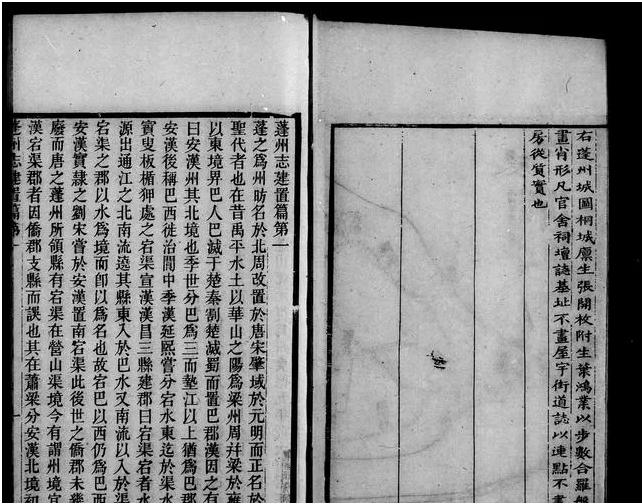 右蓬州城圖桐城廪生張開枚附生葉鴻業以步數合羅盤
畫肖形凡官舍祠壇誌基址不畫屋宇街道誌以連點不畫
房從質實也
蓬州志建置篇第一
蓬之爲州昉名於北周改置於唐宋肇域於元明而正名於
聖代者也在昔禹平水土以華山之陽爲梁州周幷梁於雍
以東境界巴人巴滅于楚秦割楚滅蜀而置巴郡漢因之有
曰安漢州其北境也季世分巴爲三而墊江以上猶爲巴
安漢後稱巴西徙治閬中季漢延熙嘗分宕水東迄於渠
賨叟板楯狎處之宕渠宣漢漢昌三縣建郡曰宕渠宕者水
源出通江之北南流遶其縣東入於巴水又南流以入於渠
宕渠之郡以水爲境而卽以爲名也故宕巴以西仍爲巴西
安漢實隸之劉宋嘗於安漢置南宕渠此後世之僑郡未幾
廢而唐之蓬州所領縣有宕渠在營山渠境今有謂州境宜
漢宕渠郡者因僑郡支縣而誤也其在蕭梁分安漢北境初
蓬州志建置篇第一